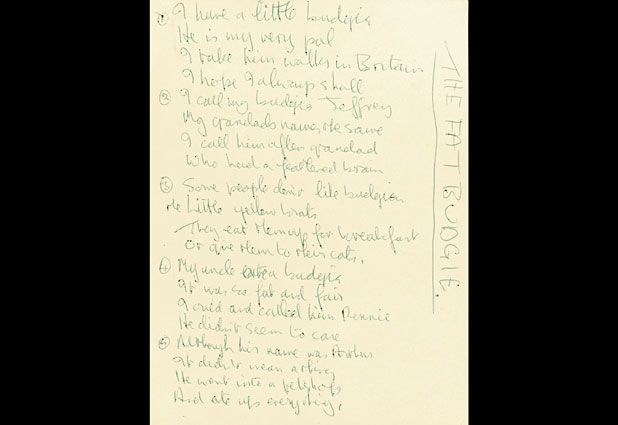 THE FAT BUDGIE.
① I have a little budgie
He is my very pal
I take him walks in Britain
I hope I always shall
② I call my budgie Jeffrey
My grandads names the same
I call him after grandad
Who had a feathered brain
③ Some people don't like budgies
the Little yellow brats
They eat them up for breakfast
Or give them to their cats.
④ My uncle ate a budgie
It was so fat and fair
I cried and called him Ronnie
He didn't seem to care
⑤ Although his name was Arthur
It didn't mean a thing
He went into a petshop
And ate up everything.